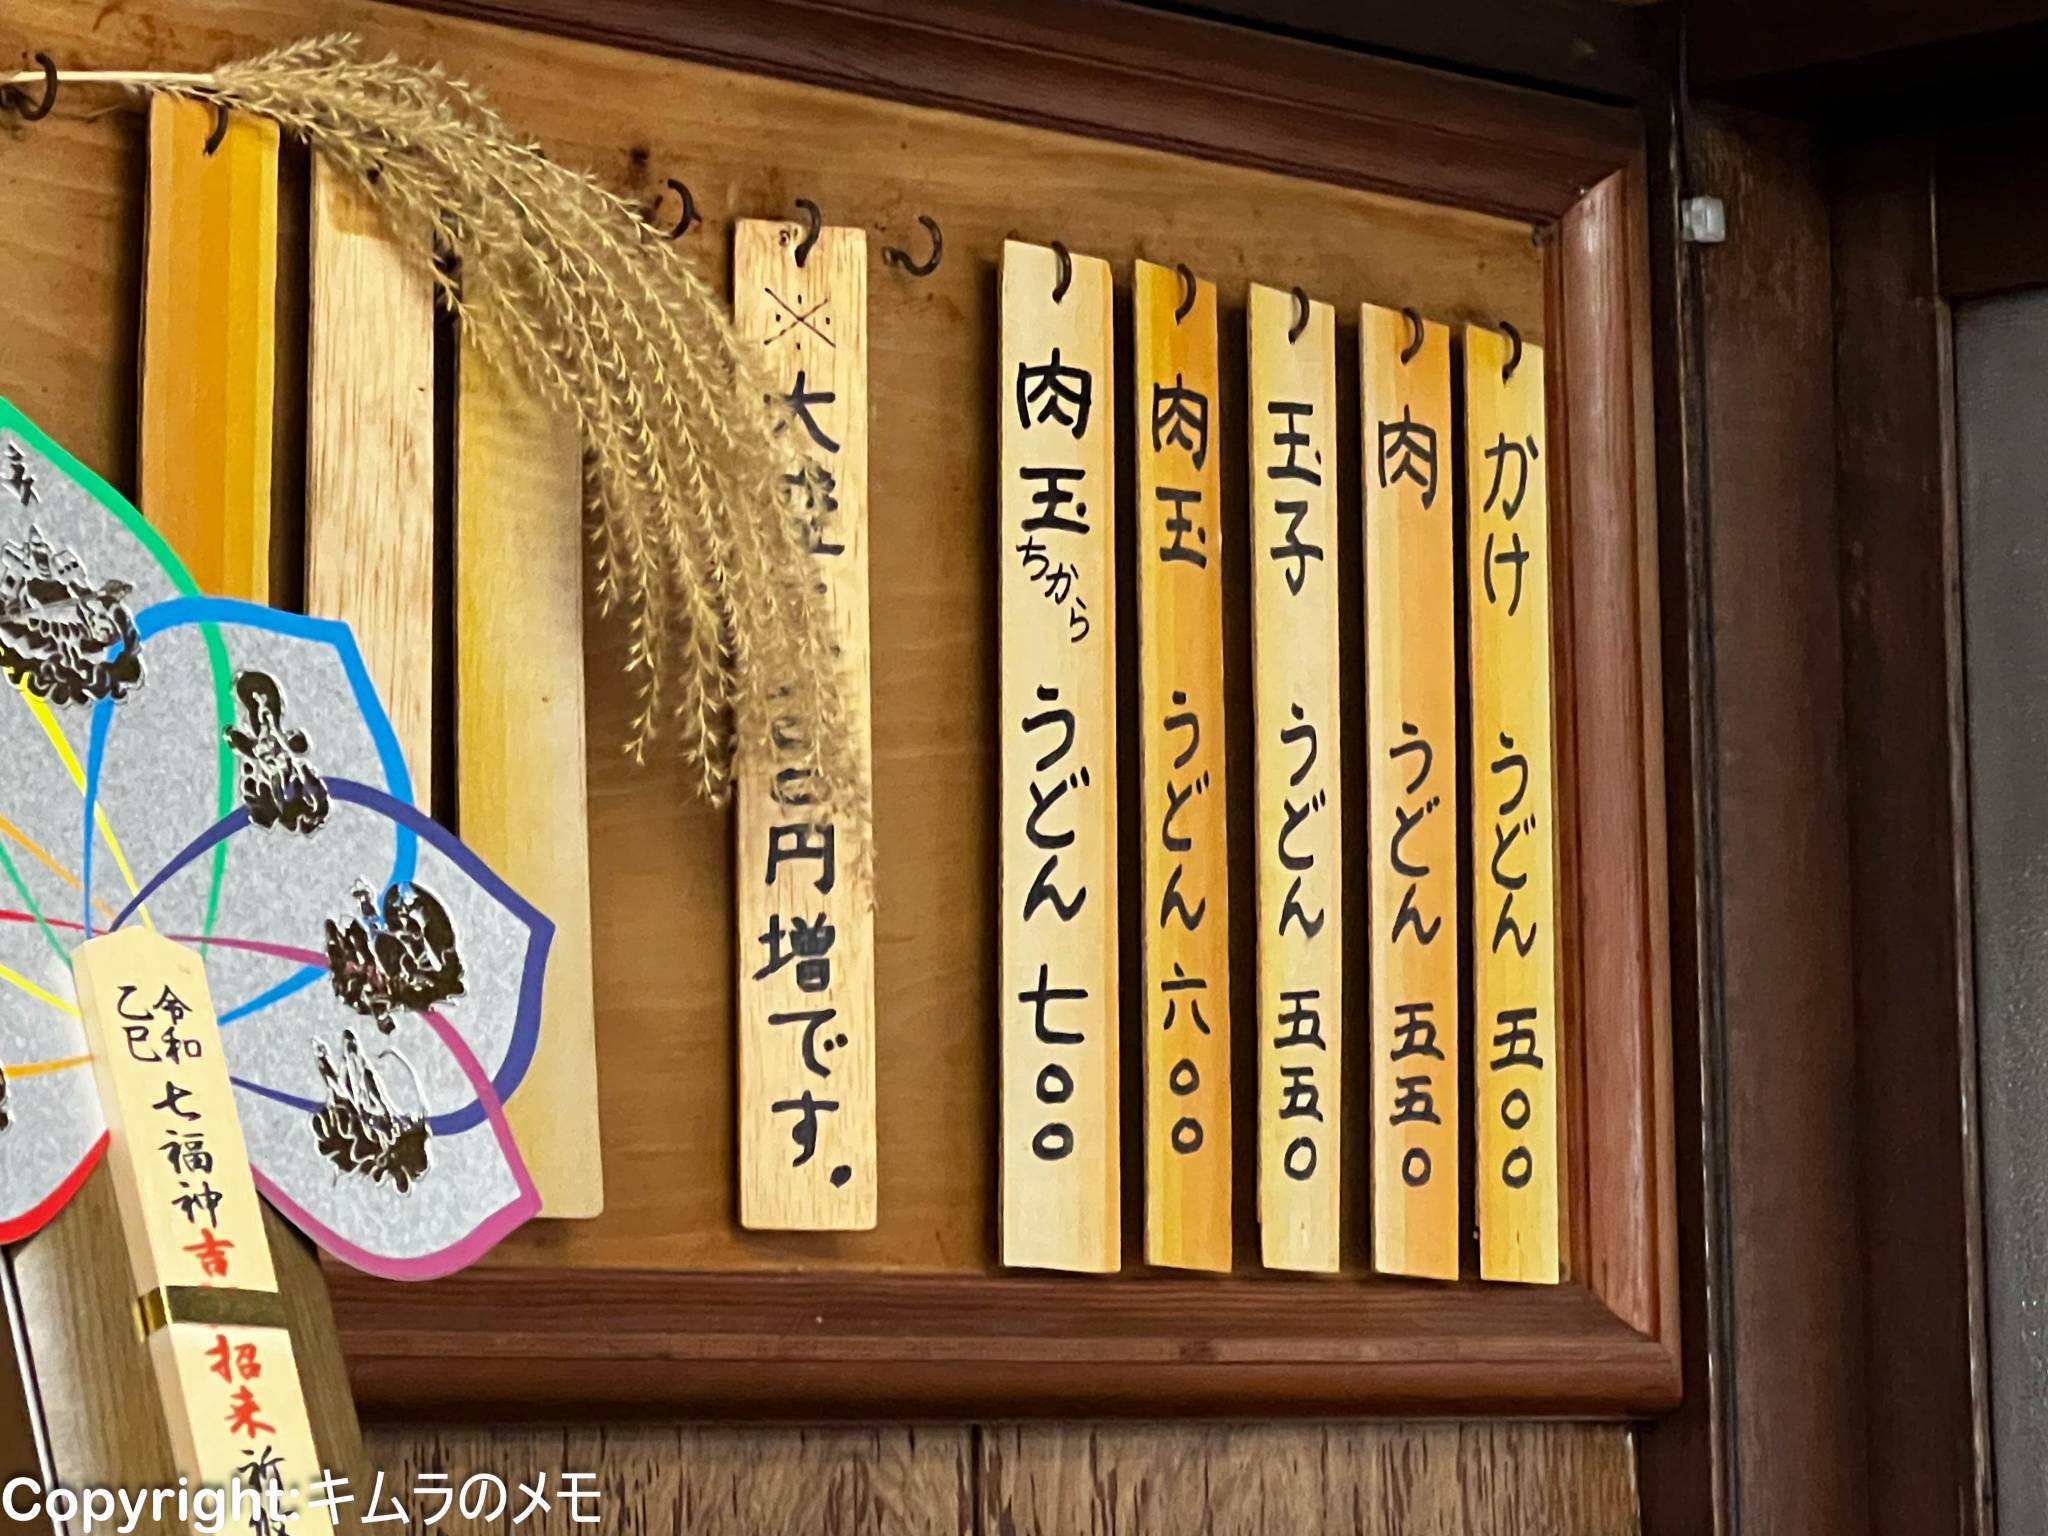 かけ うどん 五〇〇
肉 うどん 五五〇
玉子 うどん 五五〇
肉玉 うどん 六〇〇
肉玉ちから うどん 七〇〇
※大盛
円増です。
亥
令和
乙巳
七福神吉
招来祈
Copyright:キムラのメモ